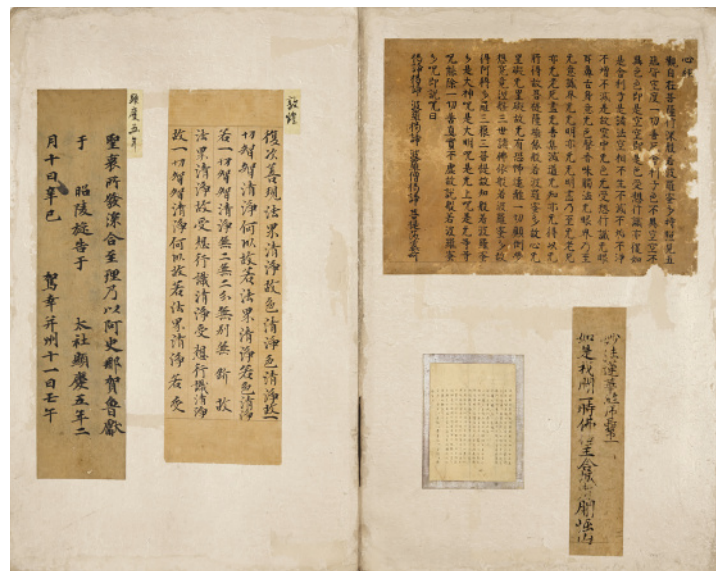 心経
觀自在菩薩行深般若波羅蜜多時照見五
蘊皆空度一切苦厄舍利子色不異空空不
異色色即是空空即是色受想行識亦復如
是舍利子是諸法空相不生不滅不垢不淨
不增不減是故空中无色无受想行識无眼
耳鼻舌身意无色聲香味觸法无眼界乃至
无意識界无无明亦无无明盡乃至无老死
亦无老死盡无苦集滅道无智亦无得以无
所得故菩提薩埵依般若波羅蜜多故心无
罣礙无罣礙故无有恐怖遠離一切顛倒夢
想究竟涅槃三世諸佛依般若波羅蜜多故
得阿耨多羅三藐三菩提故知般若波羅蜜
多是大神呪是大明呪是无上呪是无等等
呪能除一切苦真實不虛故說般若波羅蜜
多呪即說呪曰
揭諦揭諦 波羅揭諦 波羅僧揭諦 菩提
妙法蓮華經序品第一
如是我聞一時佛住王舍城耆闍崛山
敦煌
復次善現法界清淨故色清淨色清淨故一
切智智清淨何以故若法界清淨若色清淨
若一切智智清淨無二無二分無別無斷故
法界清淨故受想行識清淨受想行識清淨
故一切智智清淨何以故若法界清淨若受
顯慶五年
聖衷所發深合至理乃以阿史那賀魯獻
于 昭陵旋告于 太社顯慶五年二
月十日辛巳 駕幸并州十一日壬午